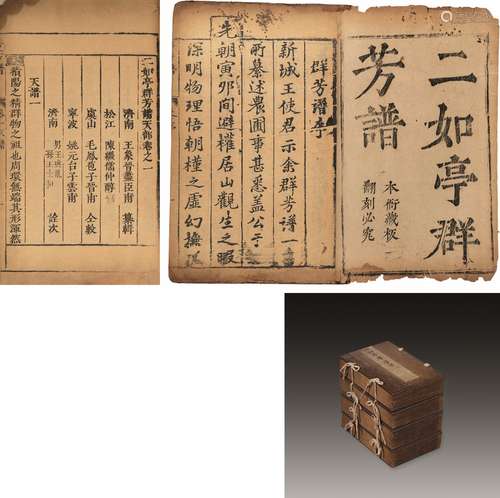 二如亭群
芳譜
本衙藏板
翻刻必究
群芳譜序
新城王使君示余群芳譜一
所纂述農圃事甚悉蓋公于
先朝寅卯間避權居山觀生之暇
深明物理悟朝槿之虛幻撫
二如亭群芳譜天部卷之一
濟南 王象晉藎臣甫 纂輯
松江 陳繼儒仲醇
虞山 毛鳳苞子晉甫 仝較
寧波 姚元台子雲甫
濟南 男王與 孫王士 詮次
天譜一
積陽之精群物之祖也周環無端其形渾然